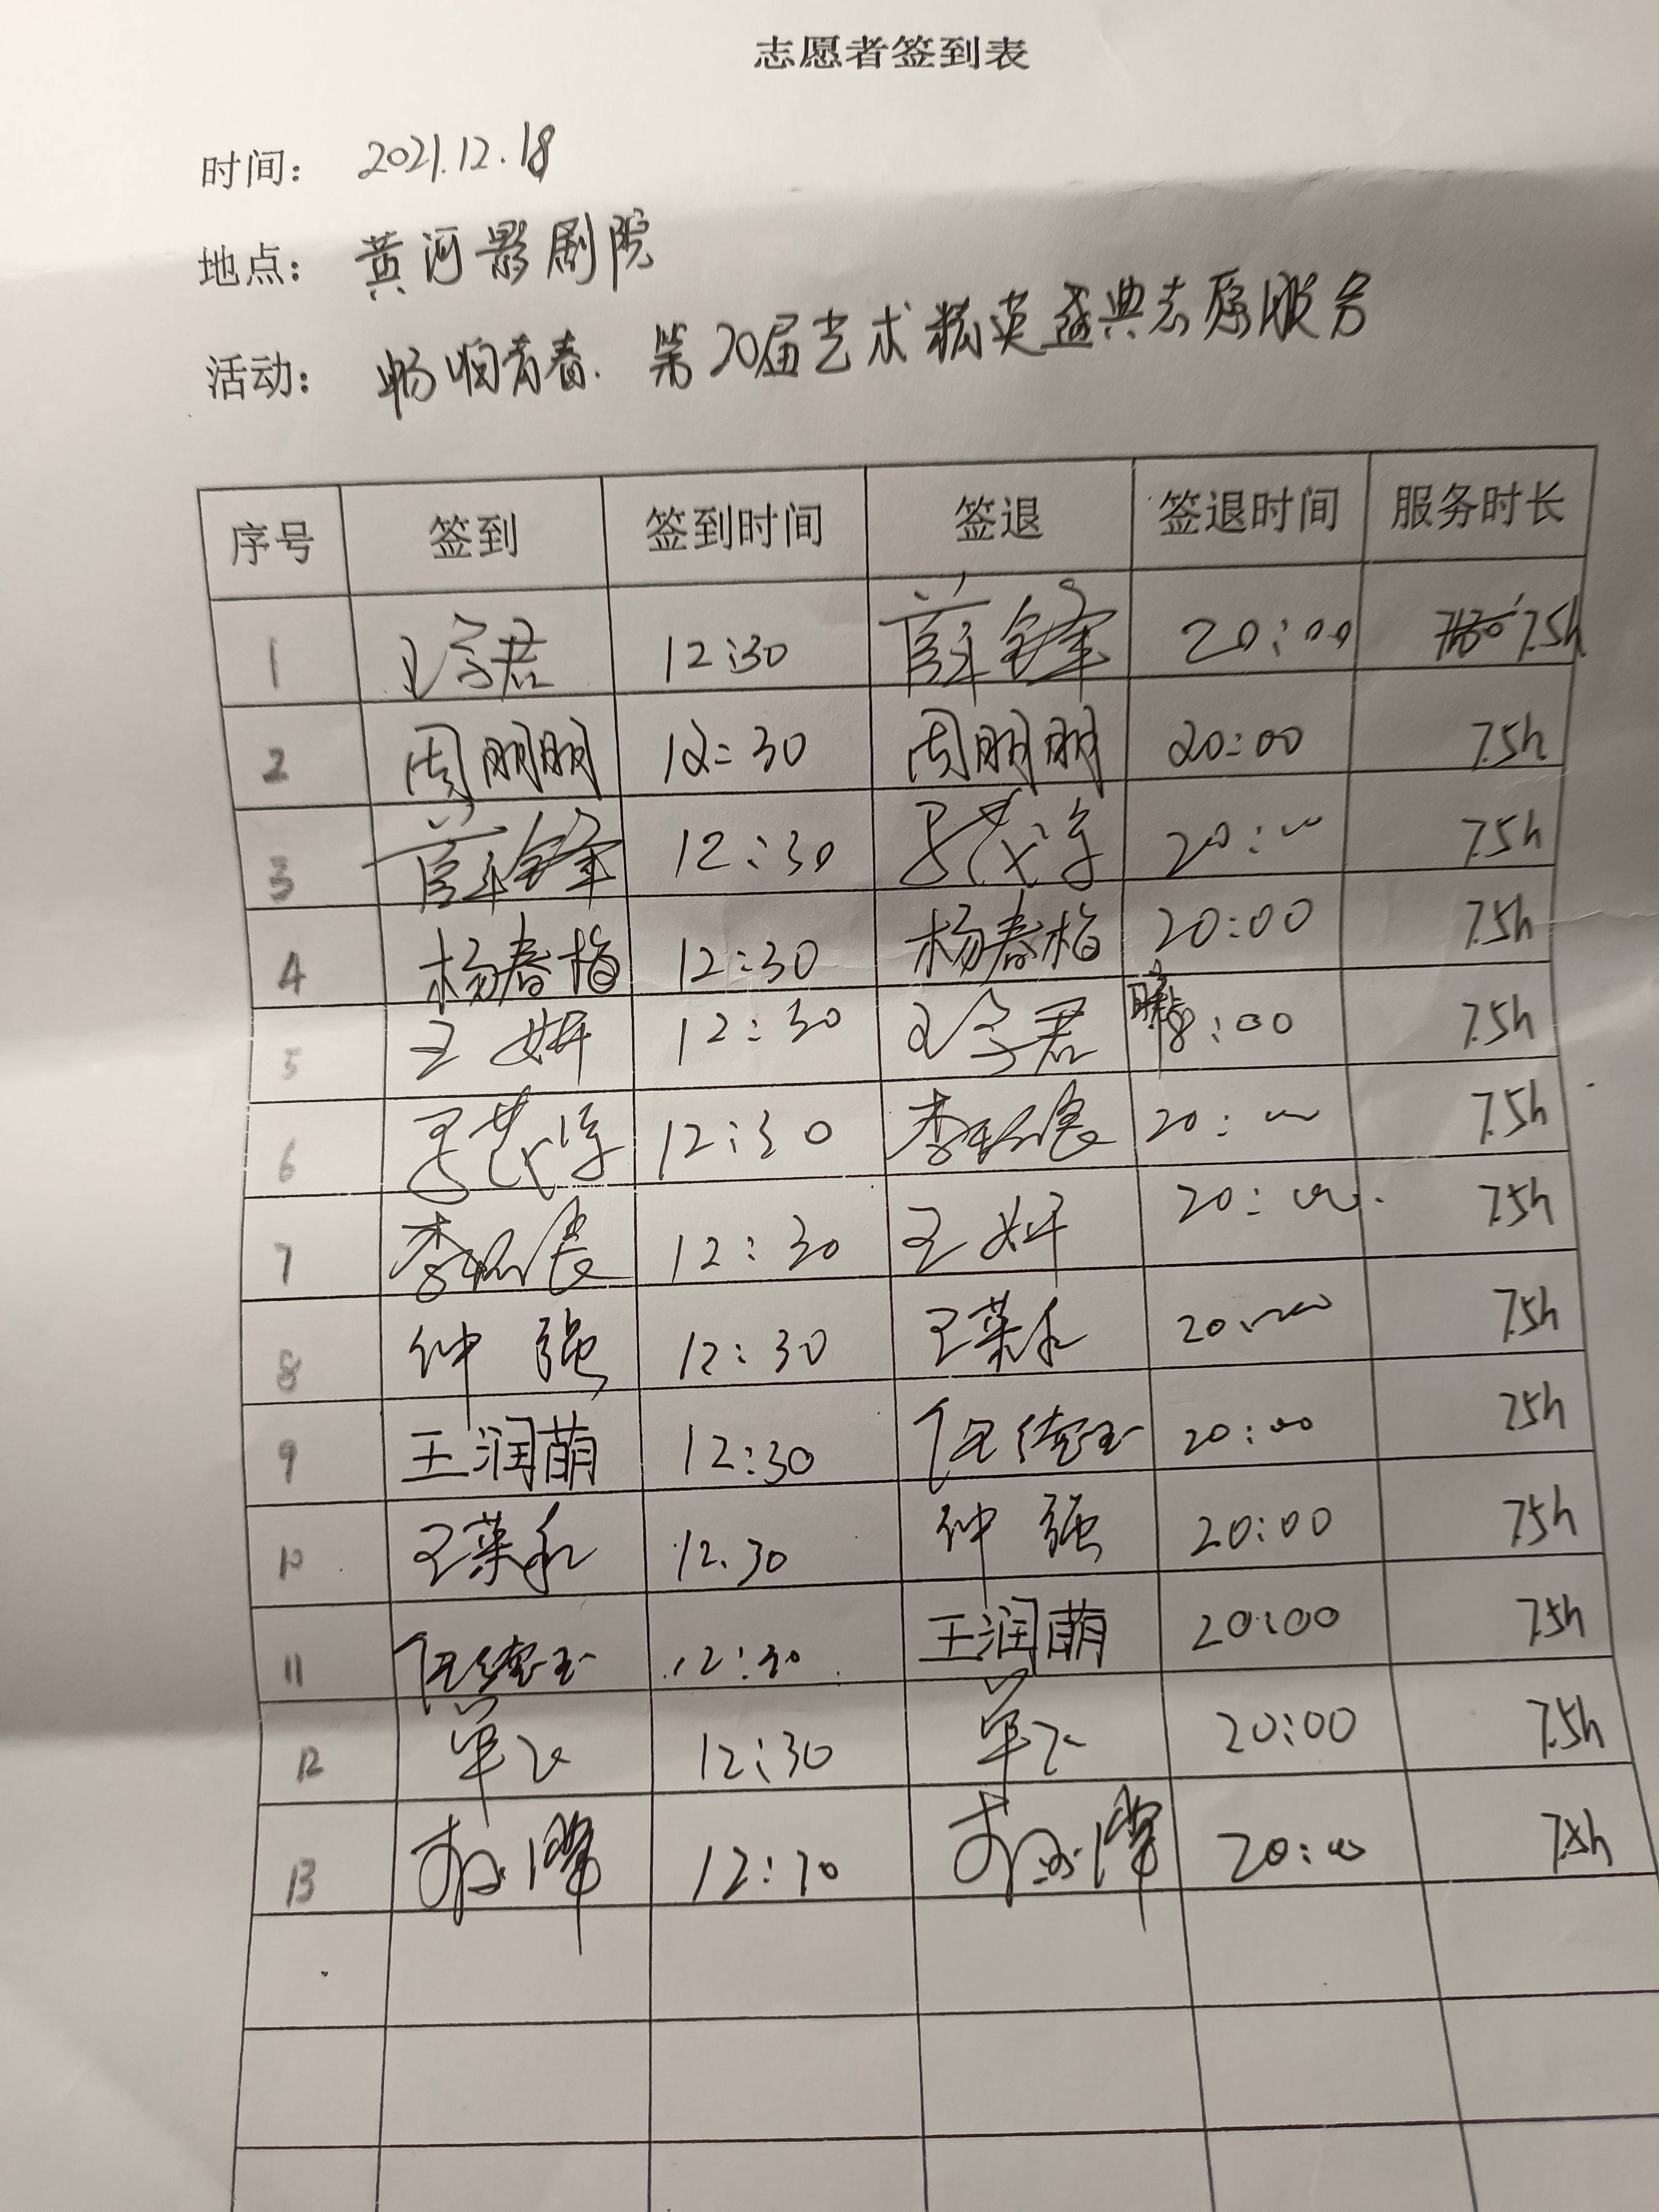 志愿者签到表
时间： 2021.12.18
地点： 黄河影剧院
活动： 畅响青春. 第20届艺术精英盛典志愿服务
序号 签到 签到时间 签退 签退时间 服务时长
1 王字君 12:30 薛锋 20:00 7.5h
2 周朋朋 12:30 周朋朋 20:00 7.5h
3 薛锋 12:30 20:00 7.5h
4 杨春梅 12:30 杨春梅 20:00 7.5h
5 王妍 12:30 王字君 18:00 7.5h
6 12:30 李 20:00 7.5h
7 李 12:30 王妍 20:00 7.5h
8 钟强 12:30 王菜禾 20:00 7.5h
9 王润萌 12:30 任德玉 20:00 7.5h
10 王菜禾 12.30 钟强 20:00 7.5h
11 任德玉 12:30 王润萌 20:00 7.5h
12 单飞 12:30 单飞 20:00 7.5h
13 12:30 20:00 7.5h